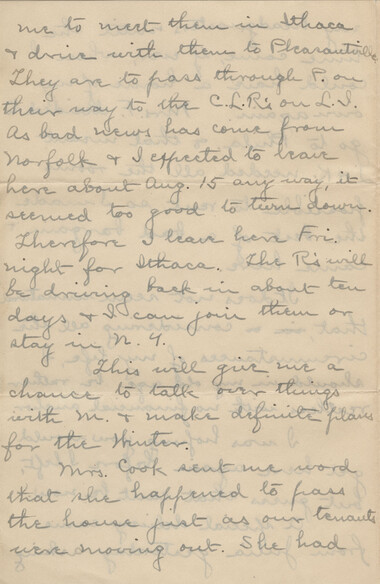 me to meet them in Ithaca
& drive with them to Pleasantville
They are to pass through P. on
their way to the C.L.R's on L.I.
As bad news has come from
Norfolk & I expected to leave
here about Aug. 15 any way, it
seemed too good to turn down.
Therefore I leave here Fri.
night for Ithaca. The R's will
be driving back in about ten
days & I can join them or
stay in N.Y.
This will give me a
chance to talk over things
with M. & make definite plans
for the Winter.
Mrs. Cook sent me word
that she happened to pass
the house just as our tenants
were moving out. She had